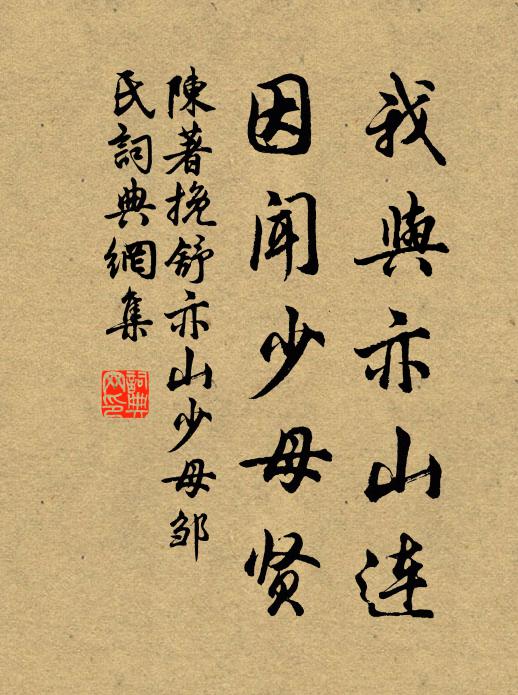 我與亦山连
因闻少母贤
陳著挽舒亦山少母邹
民詞典網集
詞典網印